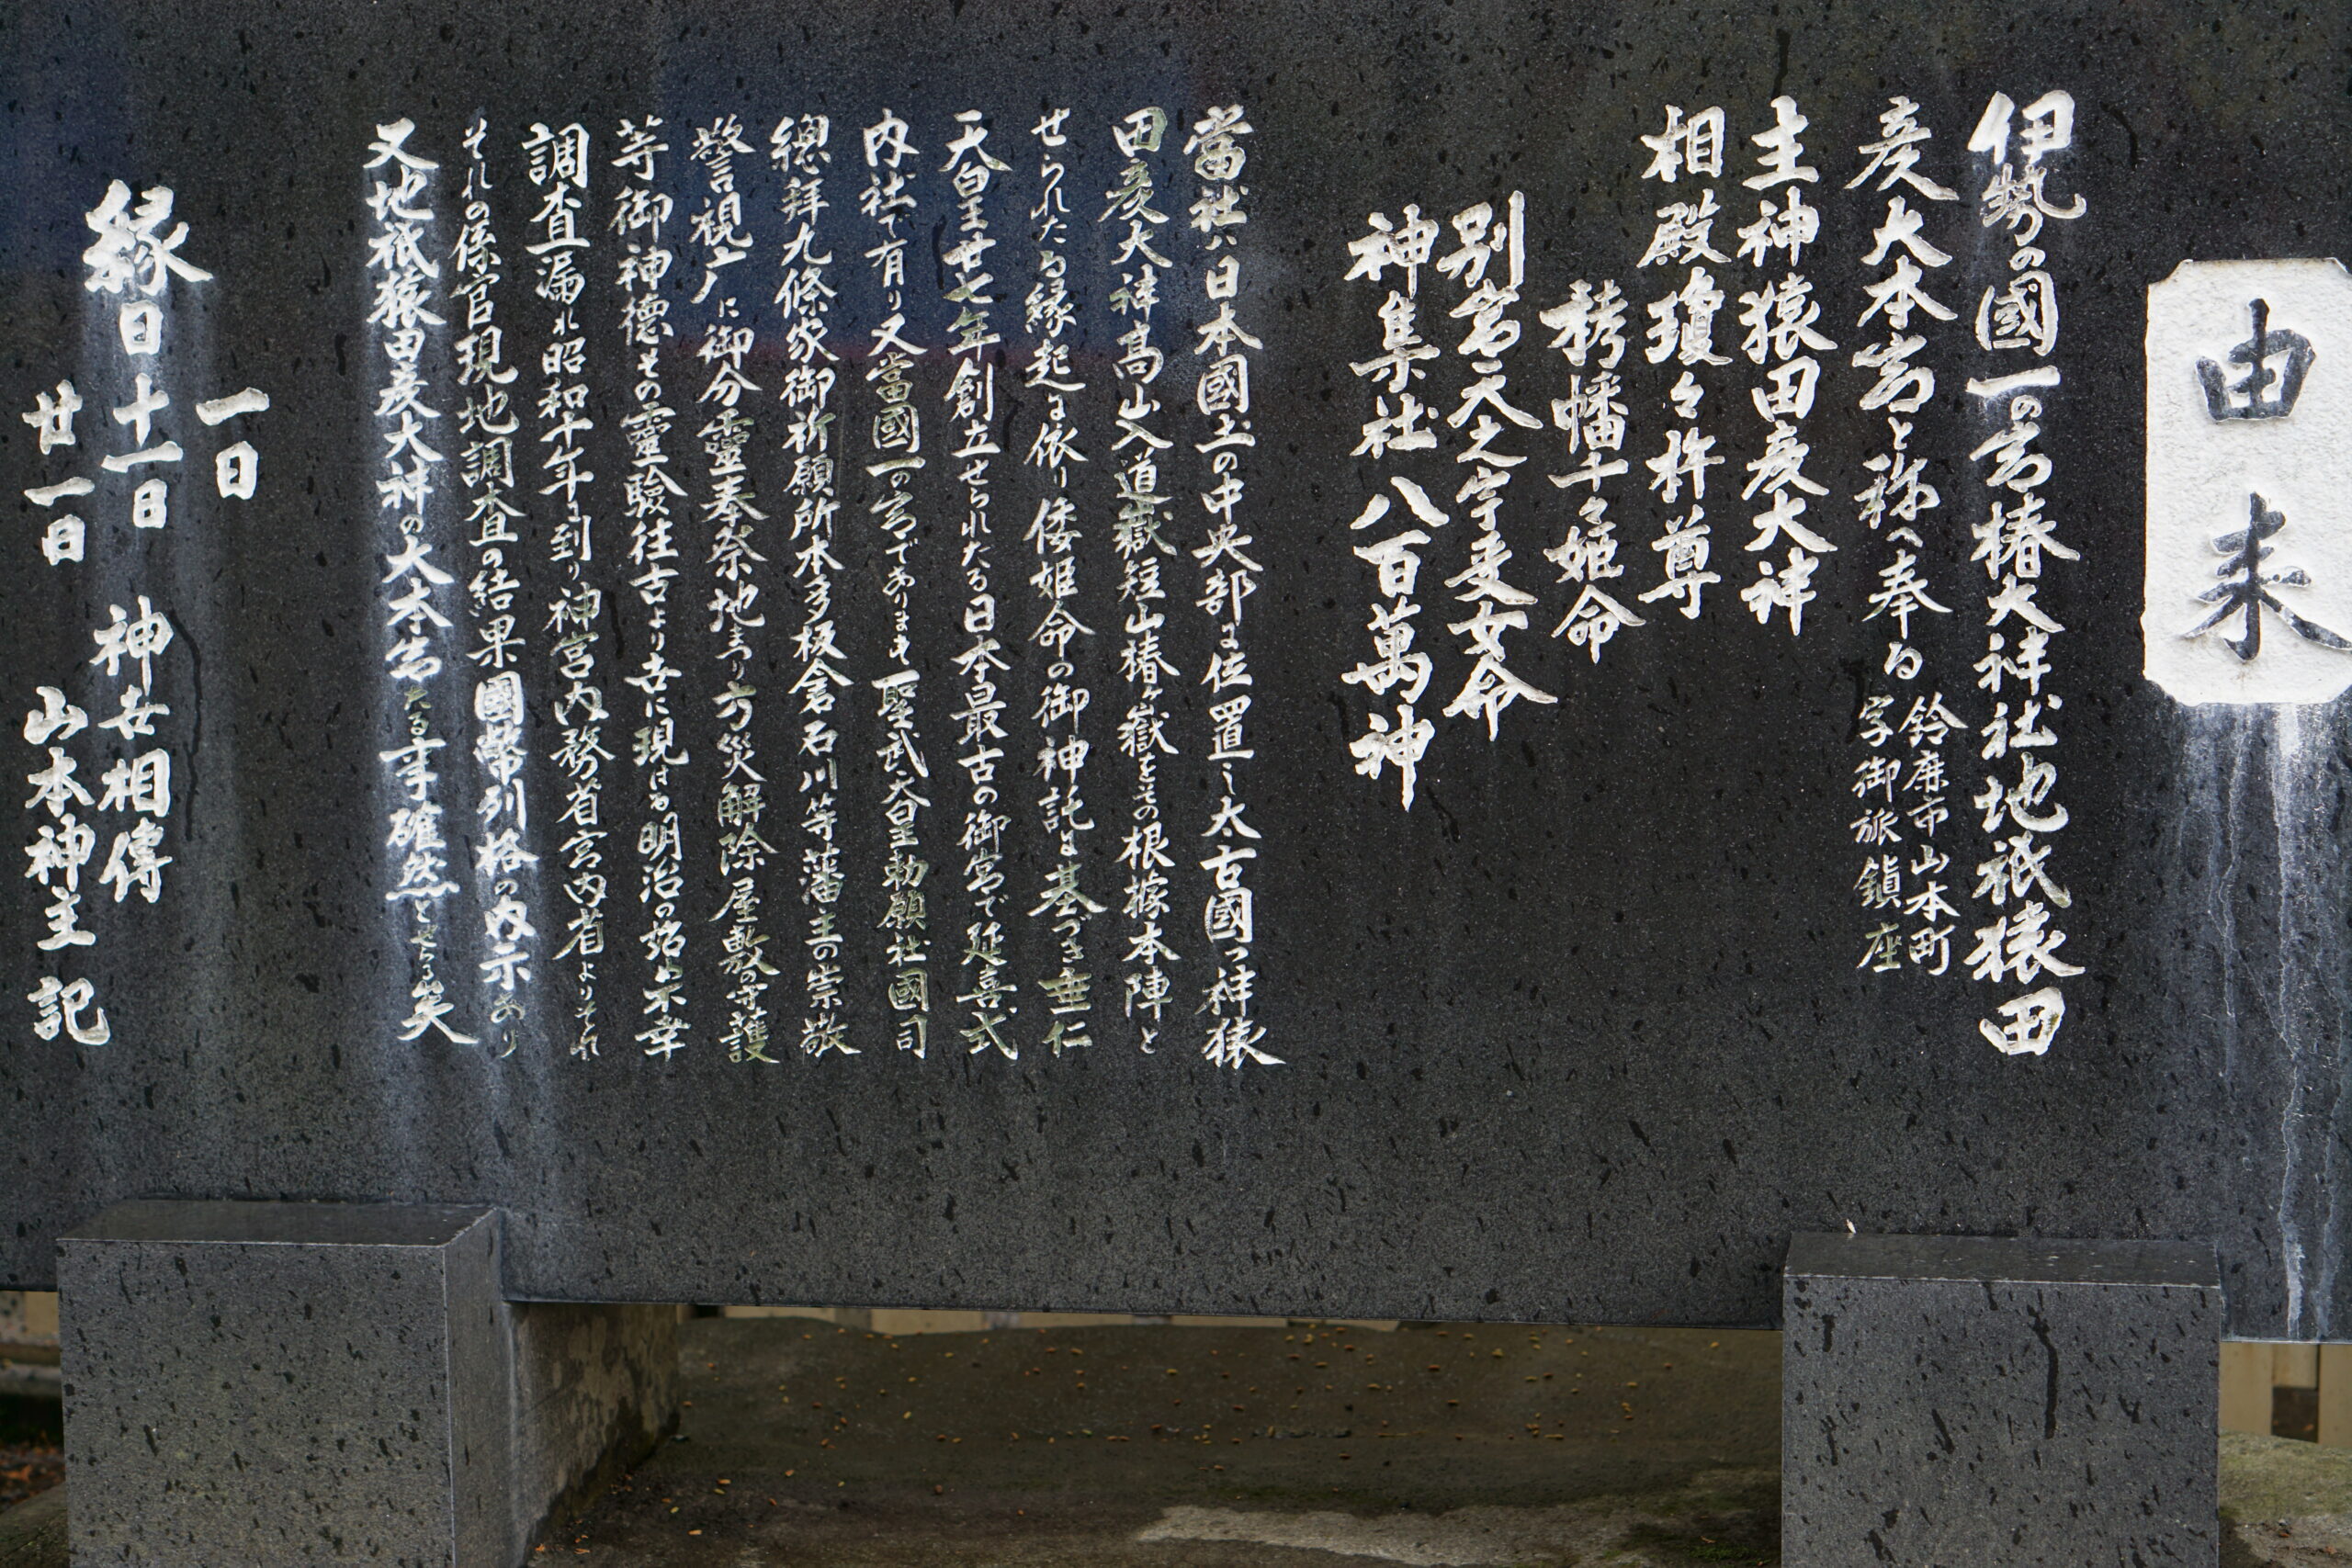 由来
伊勢の國一の宮椿大神社地祇猿田
彦大本宮と称へ奉る
鈴鹿市山本町
字御旅鎮座
主神猿田彦大神
相殿瓊々杵尊
栲幡千々姫命
別宮天之宇受女命
神集社八百萬神
當社ハ日本國土の中央部に位置し太古國つ神猿
田彦大神高山入道嶽短山椿ヶ嶽をその根據本陣と
せられたる縁起に依り倭姫命の御神託に基づき垂仁
天皇廿七年創立せられたる日本最古の御宮で延喜式
内社で有り又當國一の宮であります聖武天皇勅願社國司
總拜九條家御祈願所本多板倉石川等藩主の崇敬
警視庁に御分靈奉祭地まつり方災解除屋敷の守護
等御神徳その靈驗往古より世に現はる明治の始め不幸
調査漏れ昭和十年に到り神宮内務省宮内省よりそれ
それの係官現地調査の結果國幣列格の内示あり
又地祇猿田彦大神の大本宮たる事確然とせらる矣
一日
縁日十一日
廿一日
神世相傳
山本神主記